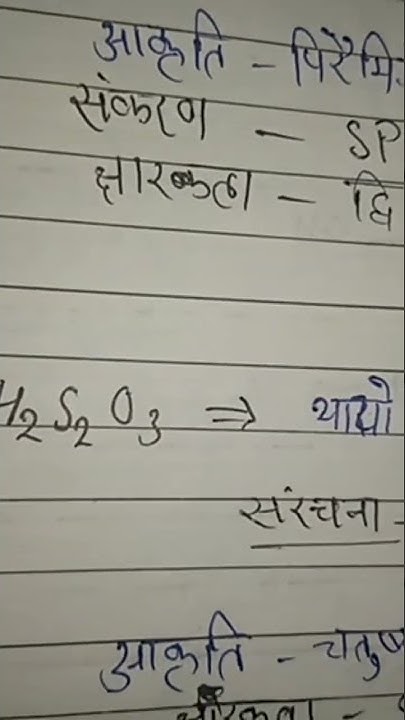 आकृति - पिरैमि
संकरण - SP
क्षारकता - द्वि
H2S2O3 ⇒ थायो
संरचना -
आकृति - चतुष
क्षारकता -